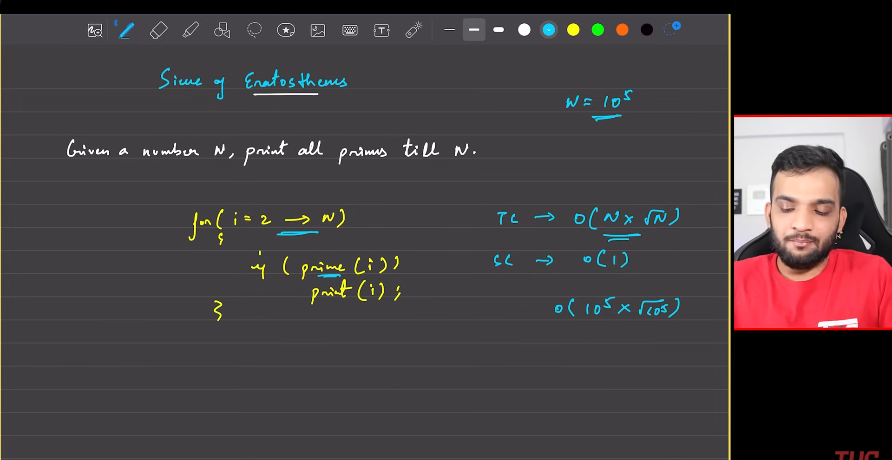 Sieve of Eratosthenes
N = 10^5
Given a number N, print all primes till N.
for( i = 2 → N)
{
if ( prime (i) )
print (i) ;
}
TC → O( N × √N )
SC → O( 1 )
O( 10^5 × √10^5 )